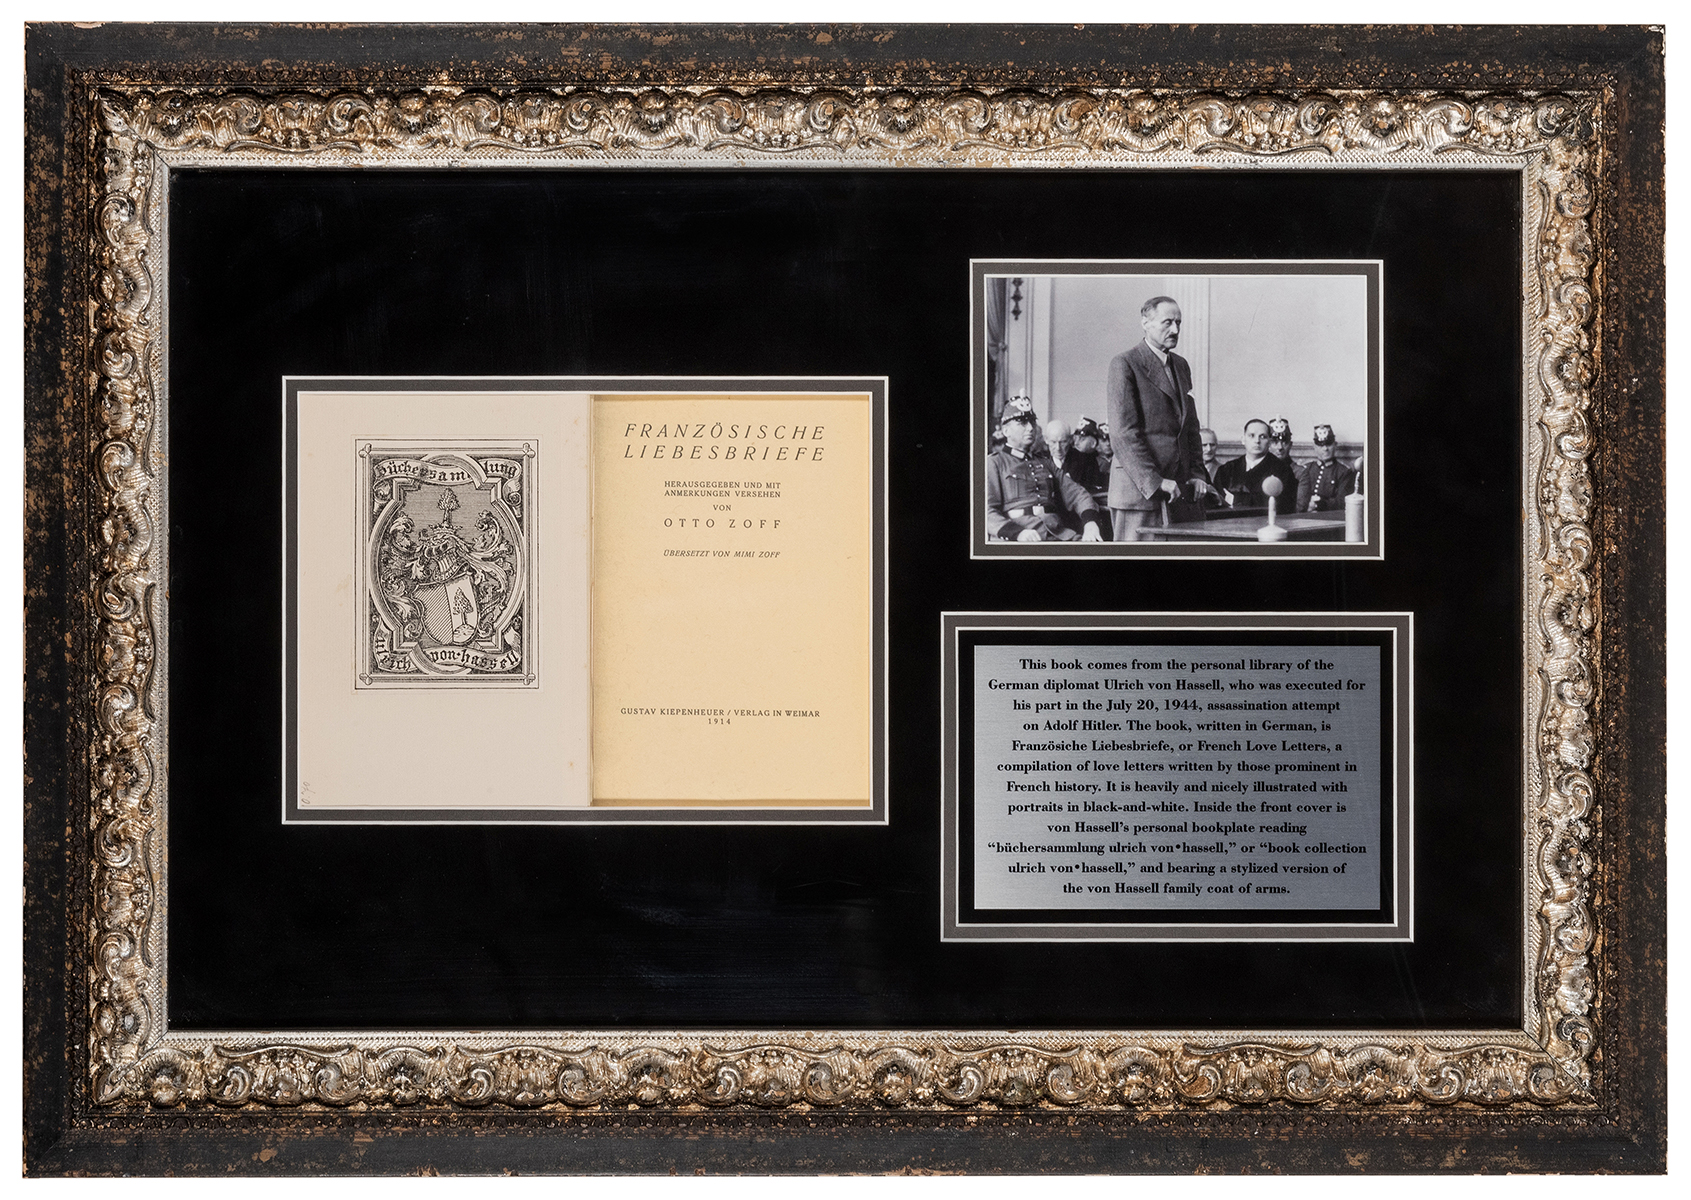 büchersammlung
ulrich von•hassell
FRANZÖSISCHE
LIEBESBRIEFE
HERAUSGEGEBEN UND MIT
ANMERKUNGEN VERSEHEN
VON
OTTO ZOFF
ÜBERSETZT VON MIMI ZOFF
GUSTAV KIEPENHEUER / VERLAG IN WEIMAR
1914
This book comes from the personal library of the
German diplomat Ulrich von Hassell, who was executed for
his part in the July 20, 1944, assassination attempt
on Adolf Hitler. The book, written in German, is
Französiche Liebesbriefe, or French Love Letters, a
compilation of love letters written by those prominent in
French history. It is heavily and nicely illustrated with
portraits in black-and-white. Inside the front cover is
von Hassell’s personal bookplate reading
“büchersammlung ulrich von•hassell,” or “book collection
ulrich von•hassell,” and bearing a stylized version of
the von Hassell family coat of arms.